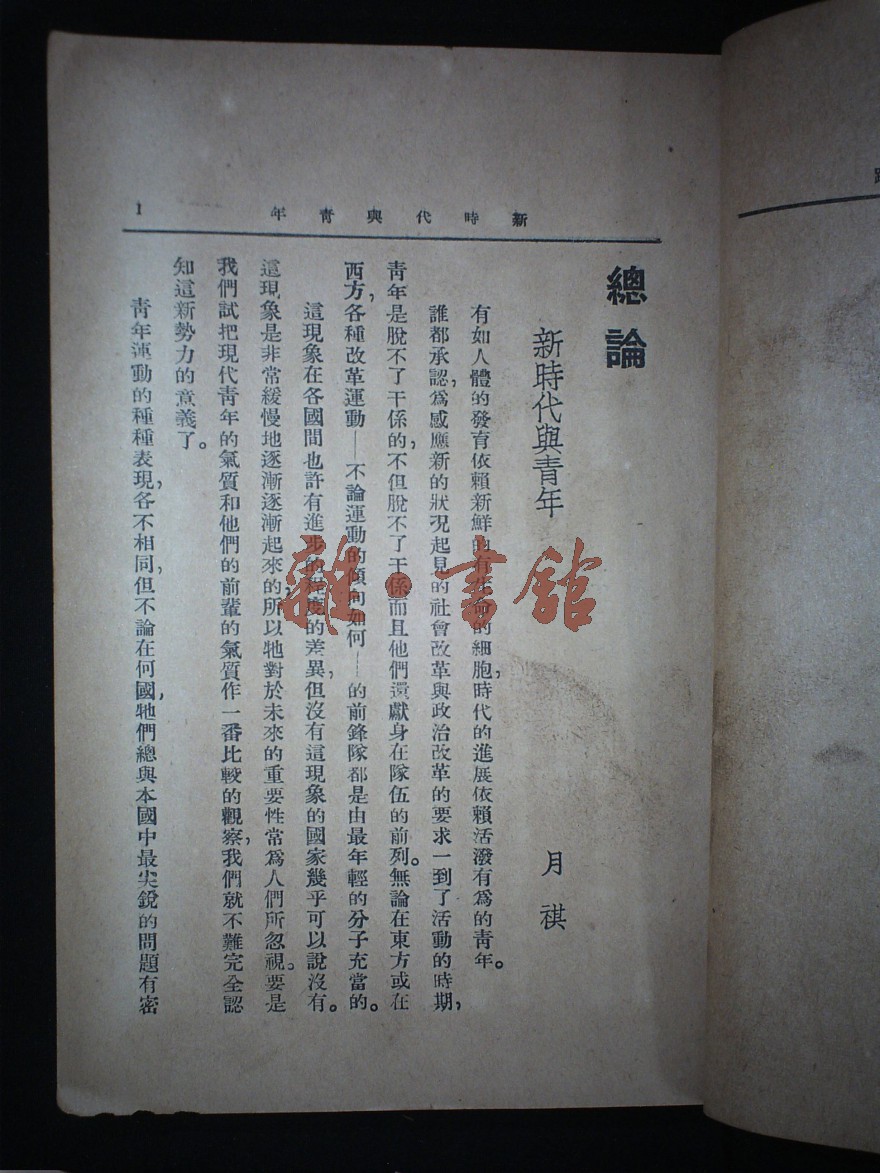 新時代與青年
1
總論
新時代與青年
月祺
有如人體的發育依賴新鮮的有生命的細胞，時代的進展依賴活潑有爲的青年。
誰都承認，爲感應新的狀況起見的社會改革與政治改革的要求一到了活動的時期，
青年是脫不了干係的，不但脫不了干係而且他們還獻身在隊伍的前列。無論在東方或在
西方，各種改革運動——不論運動的傾向如何——的前鋒隊都是由最年輕的分子充當的。
這現象在各國間也許有進步的程度的差異，但沒有這現象的國家幾乎可以說沒有。
這現象是非常緩慢地逐漸逐漸起來的，所以牠對於未來的重要性常爲人們所忽視。要是
我們試把現代青年的氣質和他們的前輩的氣質作一番比較的觀察，我們就不難完全認
知這新勢力的意義了。
青年運動的種種表現，各不相同，但不論在何國，牠們總與本國中最尖銳的問題有密
雜·書館